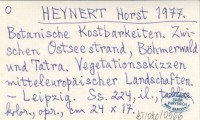 O
HEYNERT Horst 1977.
Botanische Kostbarkeiten. Zwi-
schen Ostseestrand, Böhmerwald
und Tatra. Vegetationsskizzen
mitteleuropäischer Landschaften.
– Leipzig. Ss. 224, il.,
kolor., opr., cm 24 x 17.